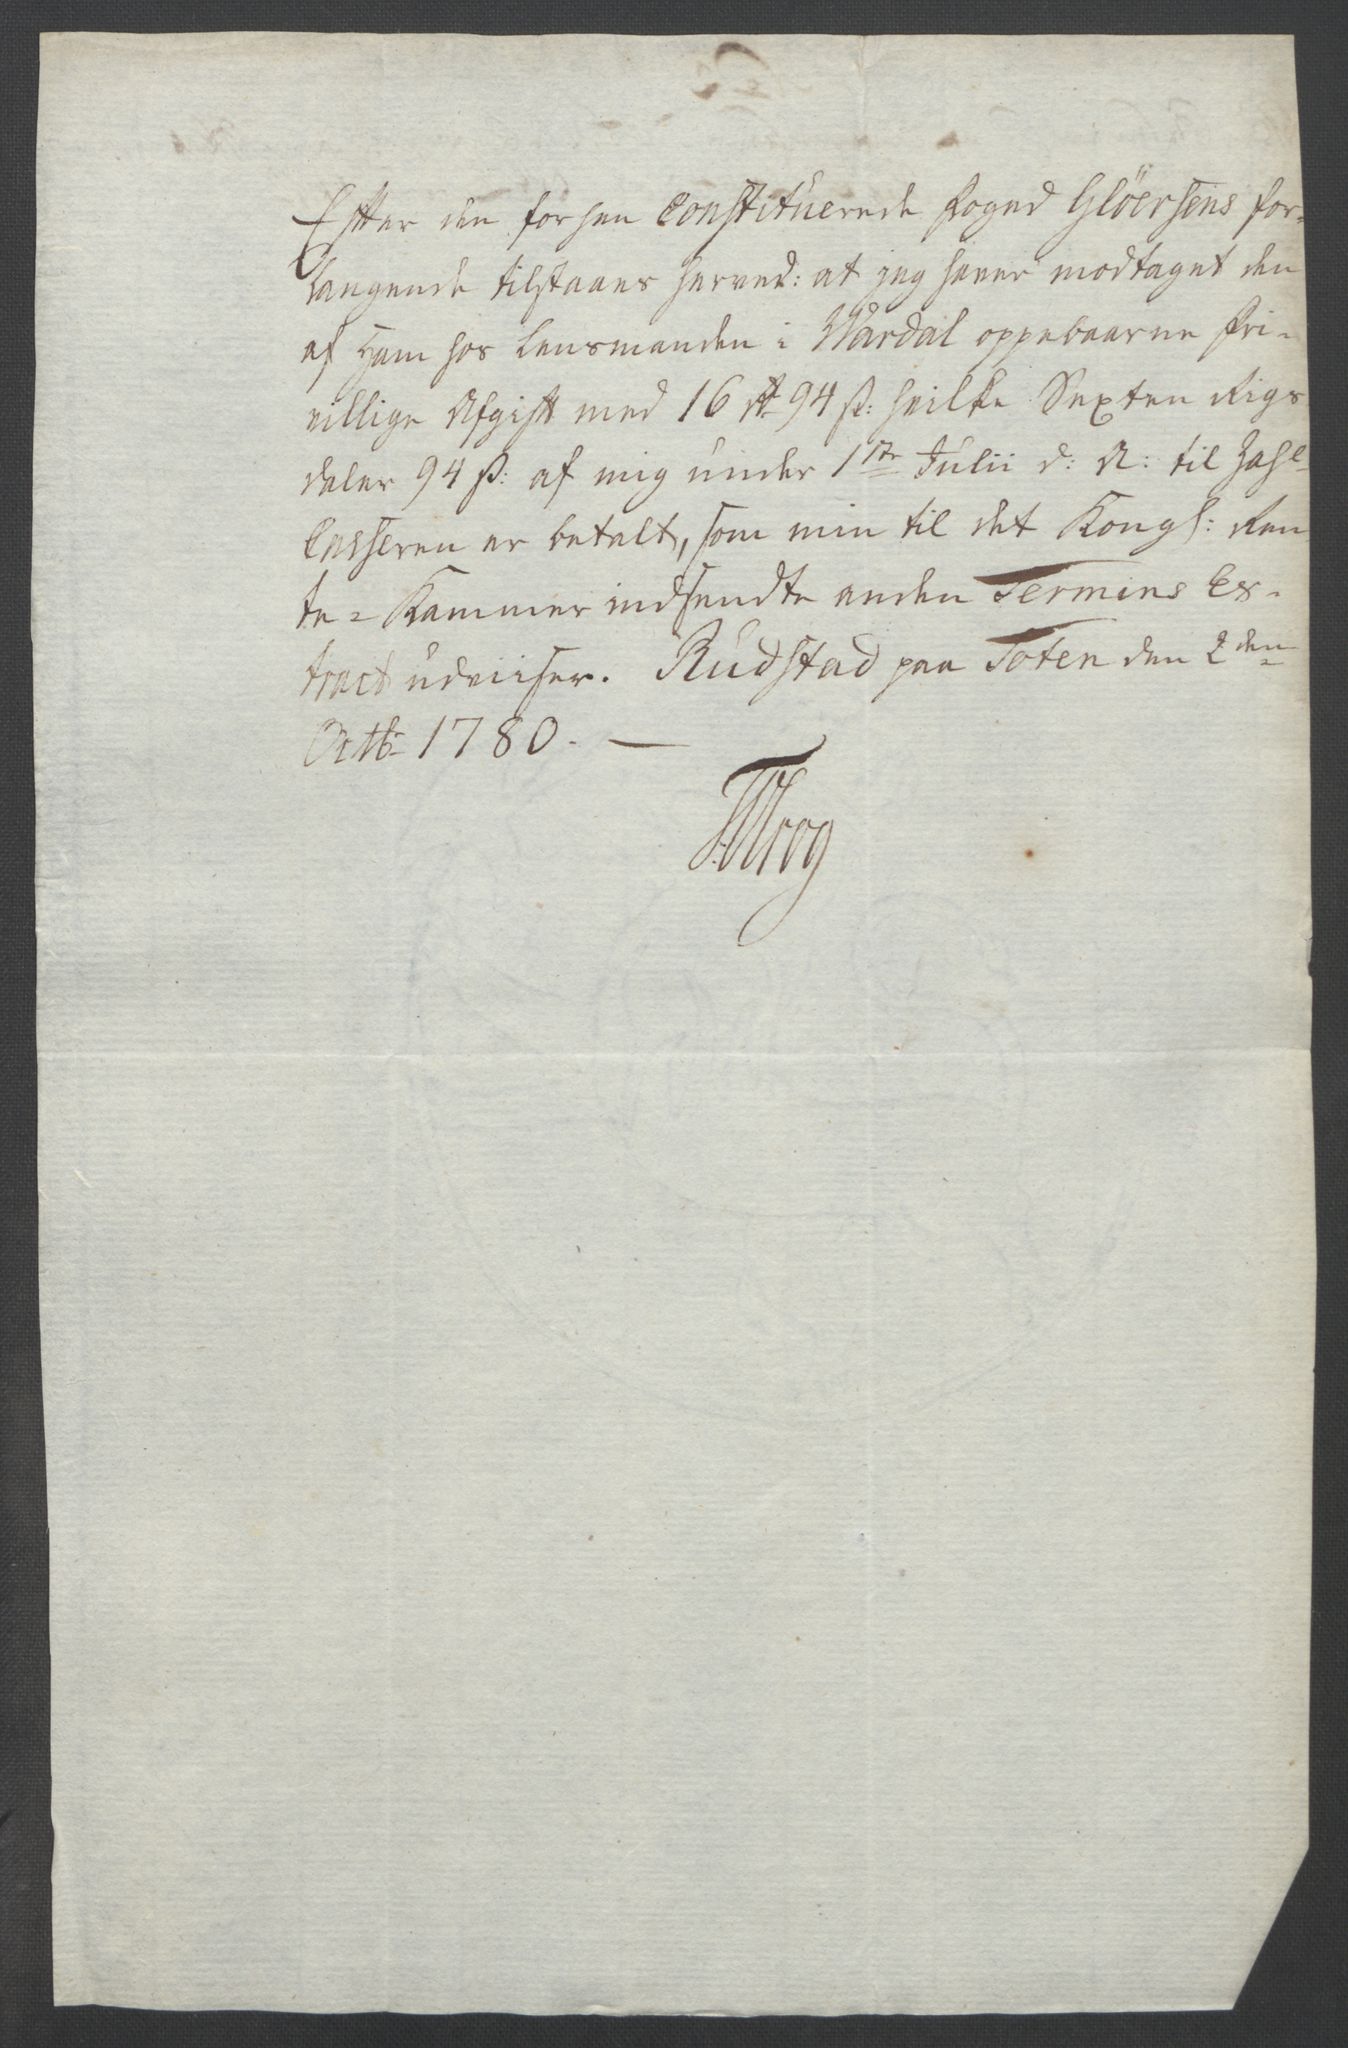 Efter den forhen Constituerede Foged Glöersens for-
langende tilstaaes herved: at jeg haver modtaget den
af Ham hos Lensmanden i Wardal oppebaarne fri-
villige Afgift med 16 rd 94 s: hvilke Sexten Rigs
daler 94 s: af mig under 1ste Julii d: A: til Zahl-
Casseren er betalt, som min til det Kongl: Ren
te-Kammer indsendte anden Termins Ex-
tract udviiser. Rudstad paa Toten den 2den
Octb: 1780. —